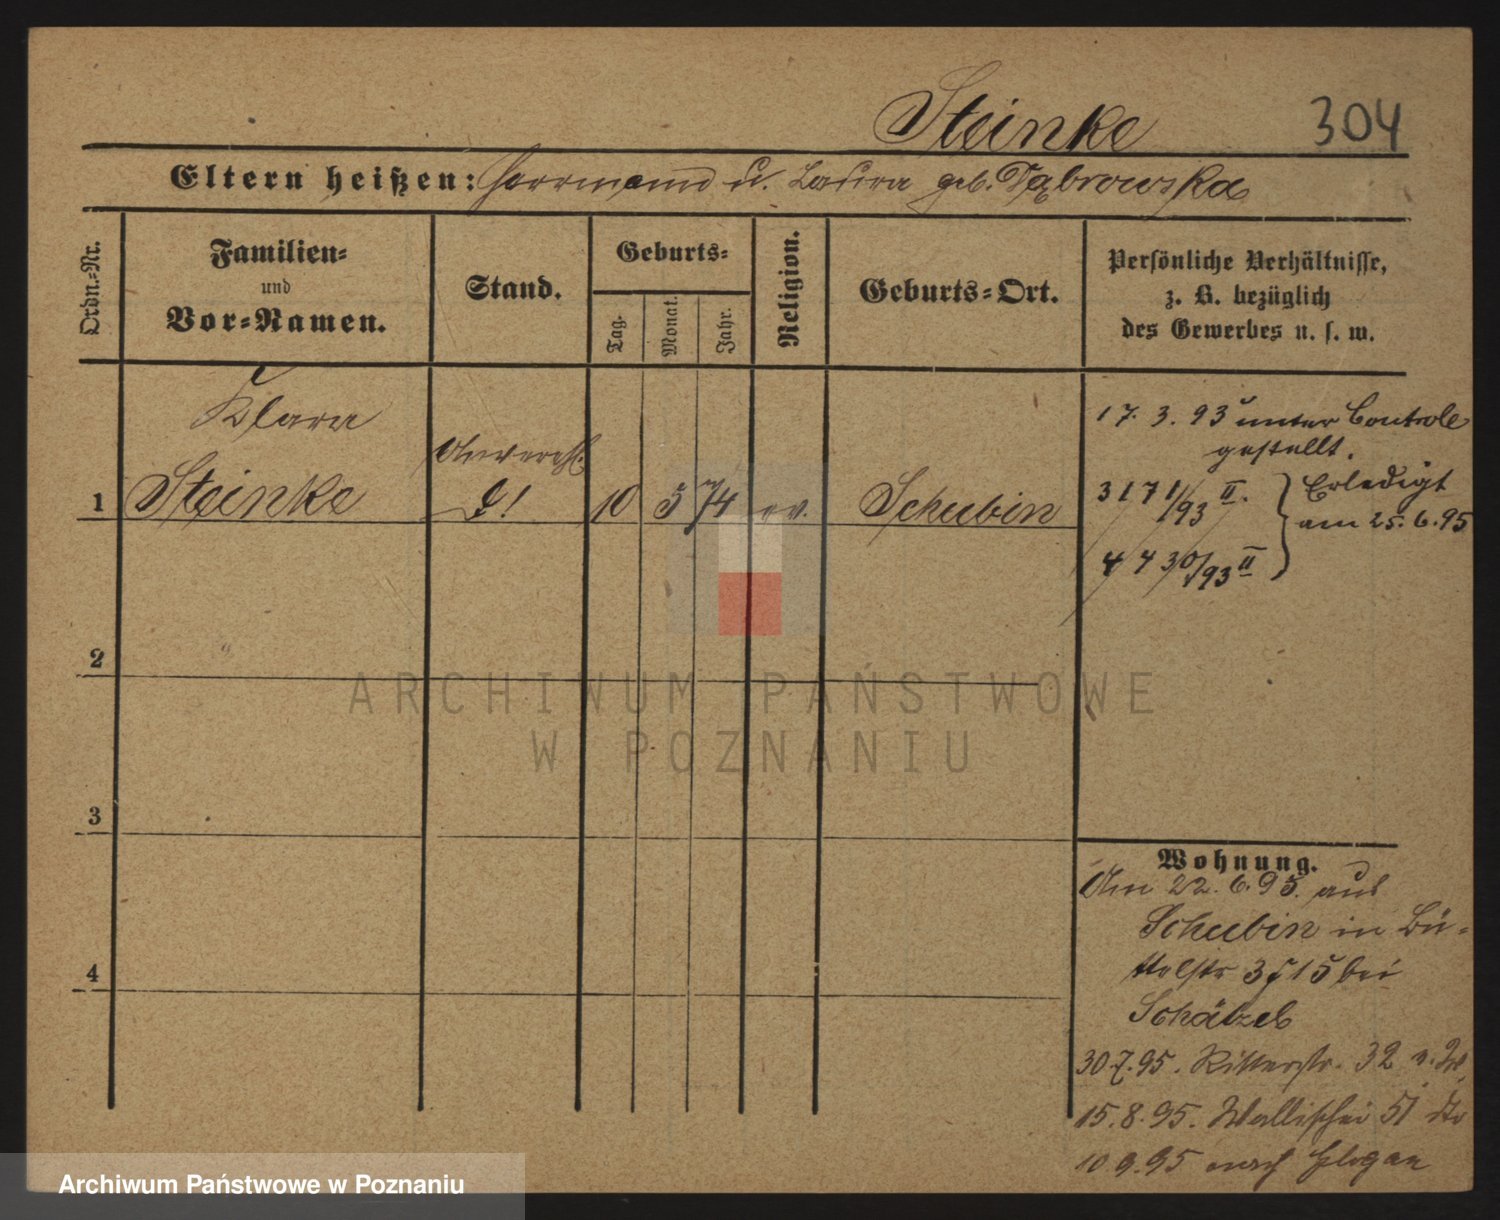 Steinke 304
Eltern heißen: Herrmann u. Laura geb. Dąbrowska
Ordn.-Nr.
Familien-
und
Vor-Namen.
Stand.
Geburts-
Tag.
Monat.
Jahr.
Religion.
Geburts-Ort.
Persönliche Verhältnisse,
z. B. bezüglich
des Gewerbes u. s. w.
Klara
1 Steinke
10 5 74 ev. Schubin
17. 3. 93 unter Controle
gestellt.
3171/93 II.
4430/93 II
Erledigt
am 25.6.95
2
3
4
Wohnung.
Am 22.6.95. aus
Schubin in Büt-
telstr 3 bei
Schätzel
30.7.95. Ritterstr. 32
15.8.95. Wallischei 51
10.9.95 nach Glogau
ARCHIWUM PAŃSTWOWE
W POZNANIU
Archiwum Państwowe w Poznaniu